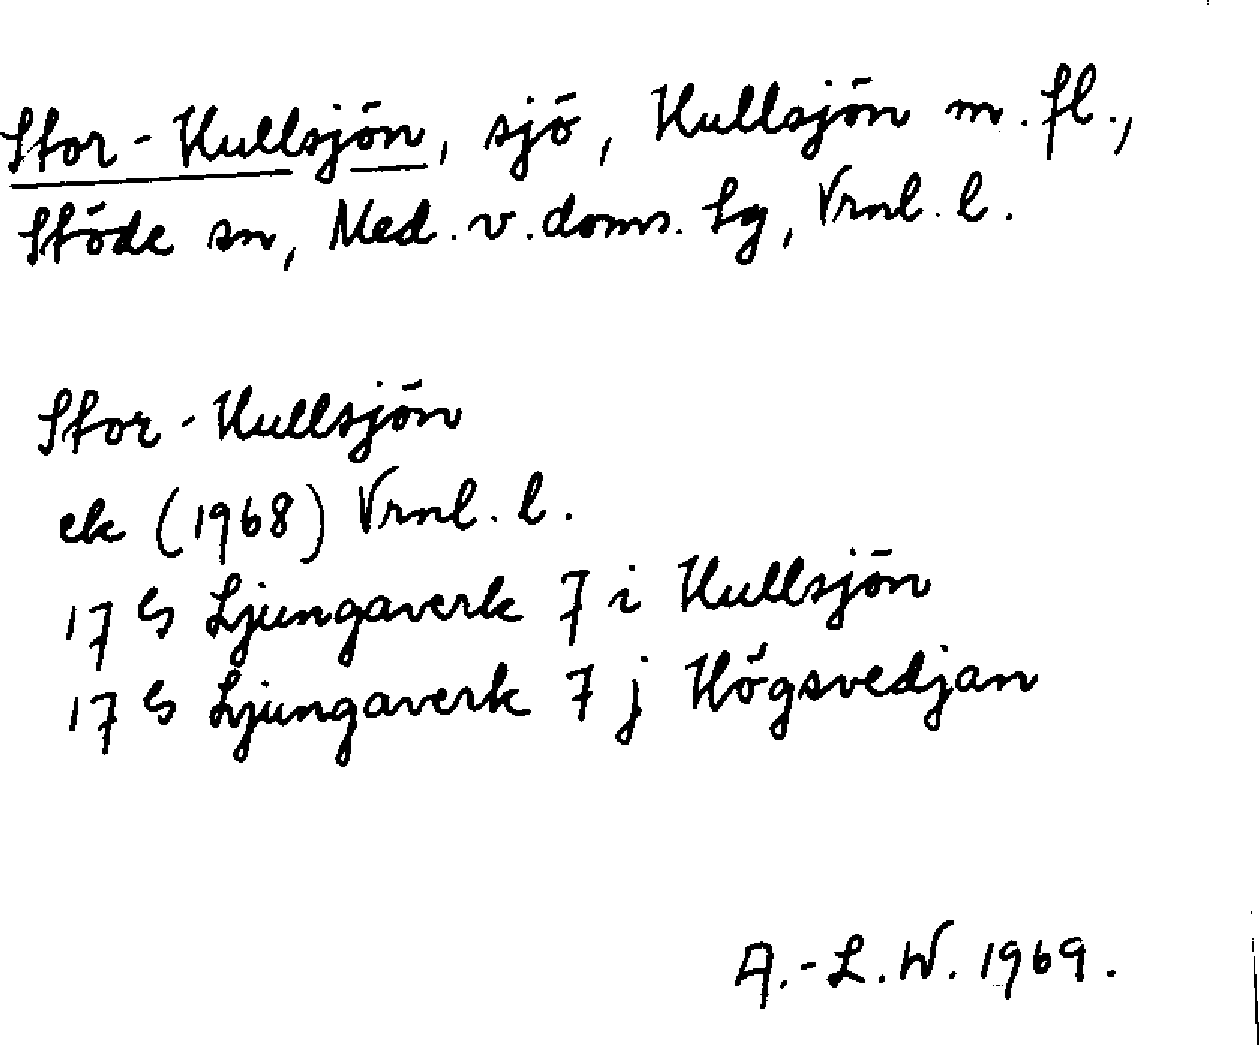 Stor-Hullsjön, sjö, Hullsjön m.fl.,
Stöde sn, Med.v.doms. tg, Vrnl.l.
Stor-Hullsjön
ek (1968) Vrnl.l.
17 G Ljungaverk 7 i Hullsjön
17 G Ljungaverk 7 j Högsvedjan
A.-L.W. 1969.